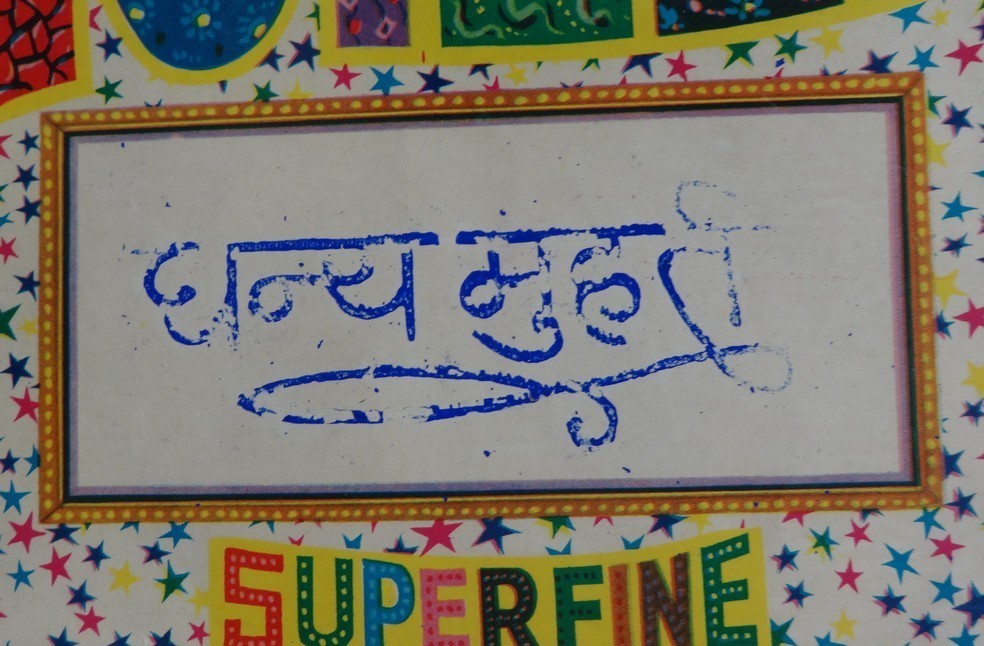 धन्य मुहर्त
SUPERFINE